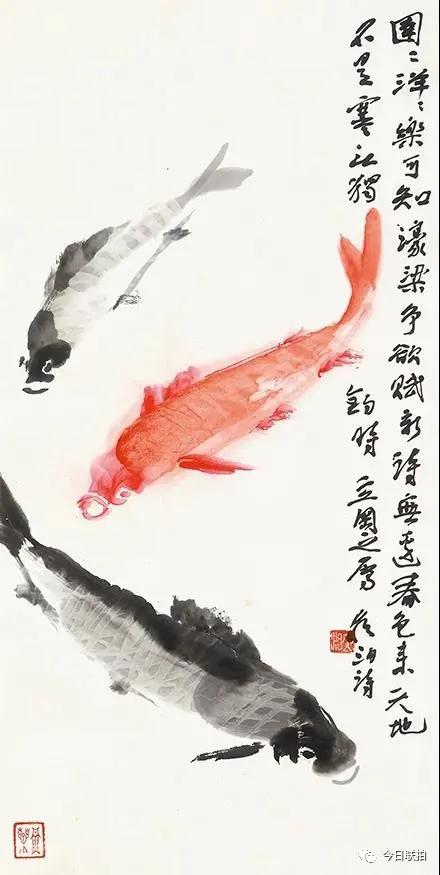 圉〻洋〻樂可知濠梁争欲賦新詩無邊春色来天地
不是寒江獨釣時
今日联拍